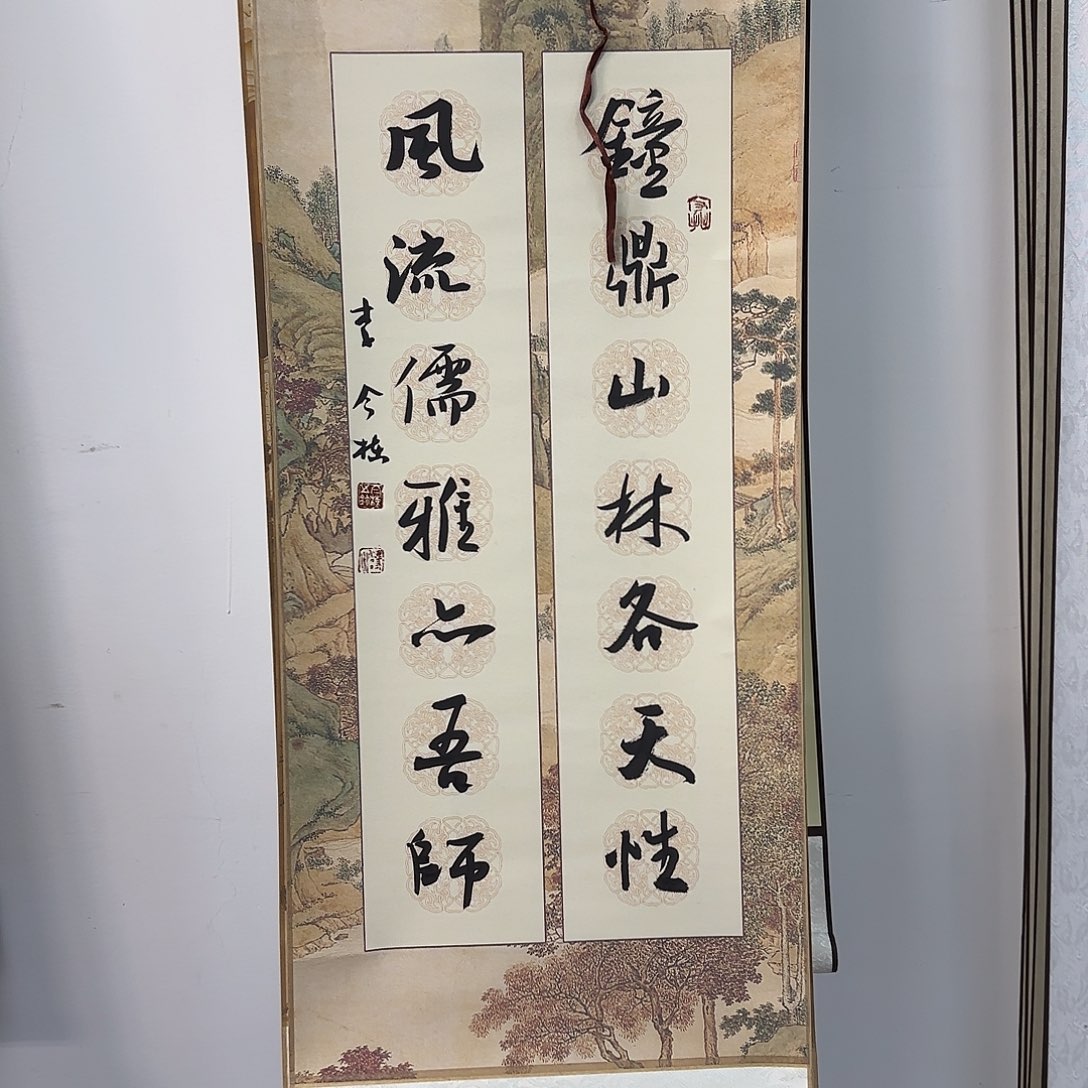 鐘鼎山林各天性
風流儒雅亦吾師
李今栋